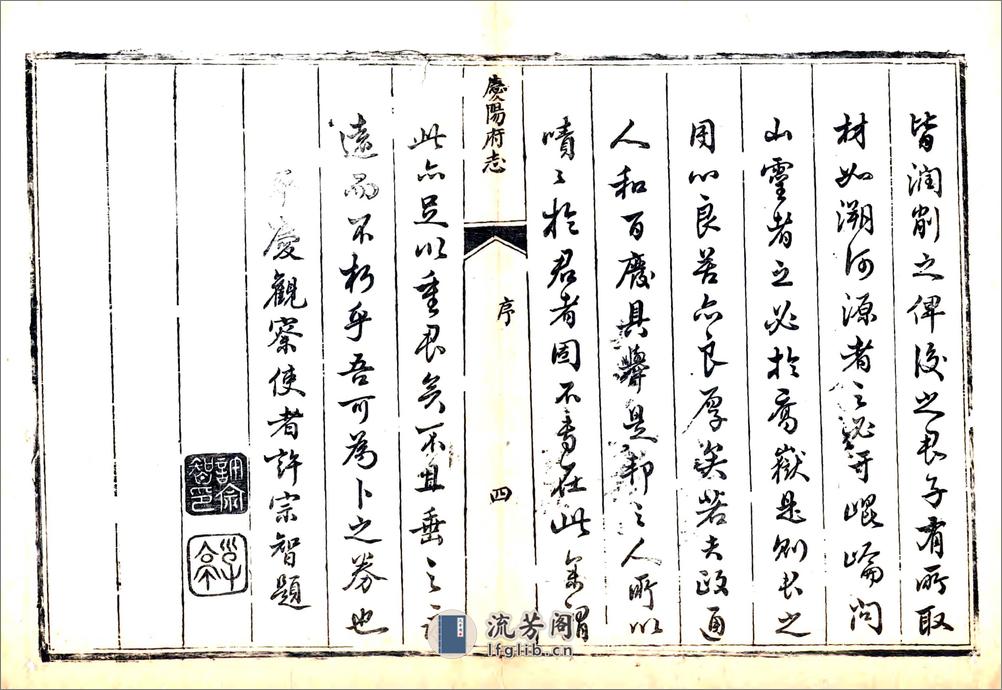 皆潤削之俾後之君子有所取
材如溯河源者之必尋崐崘問
山靈者之必於喬嶽是則君之
用心良苦亦良厚矣若夫政通
人和百廢具舉是邦之人所以
嘖〻於君者固不專在此余謂
慶陽府志
序
四
此亦足以重君矣不且垂之
遠而不朽乎吾可為卜之券也
平慶觀察使者許宗智題
許宗智印
流芳阁
lfglib.cn